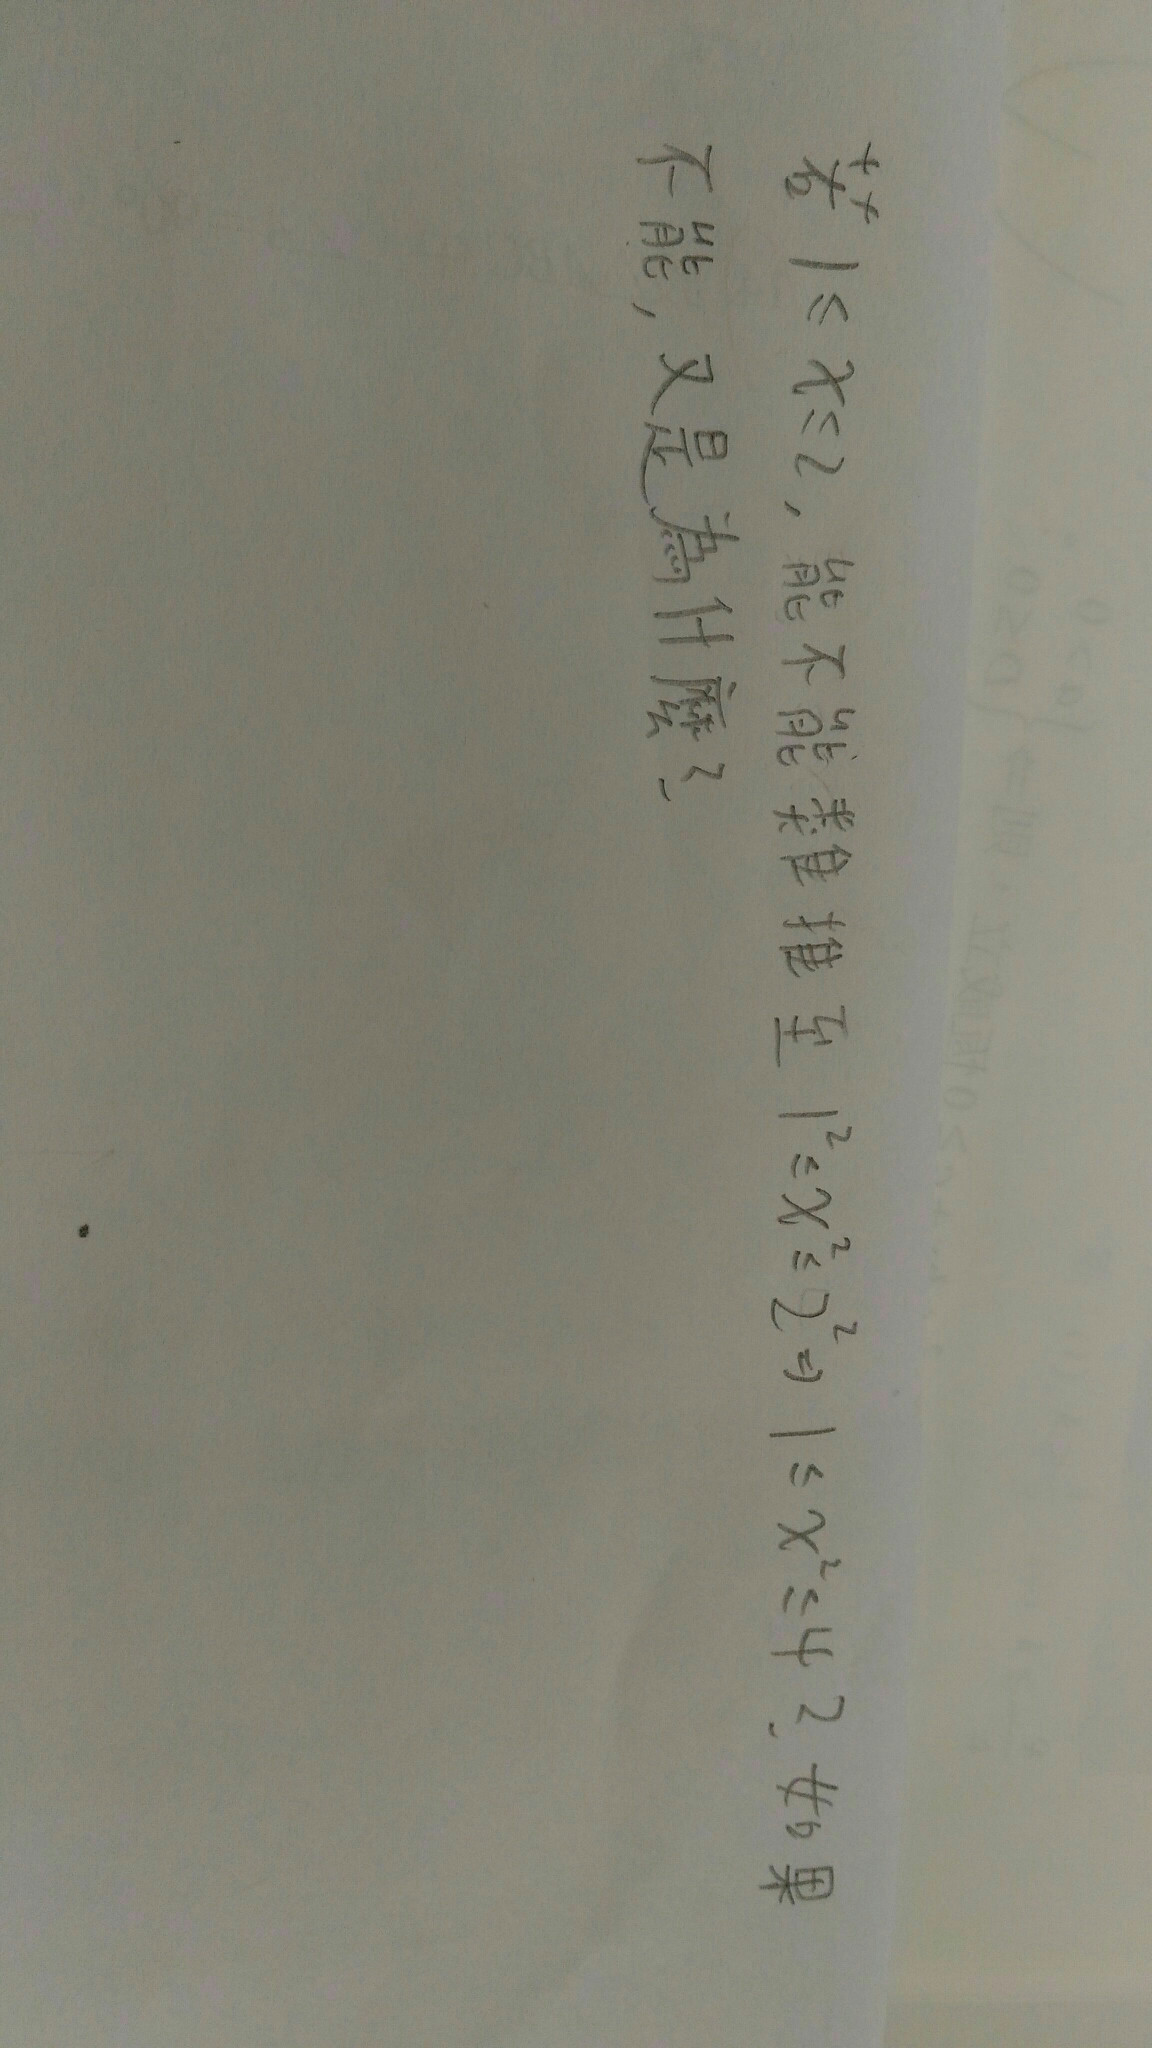 若 1≤x≤2, 能不能類推至 1²≤x²≤2² ⇒ 1≤x²≤4? 如果
不能, 又是為什麼?